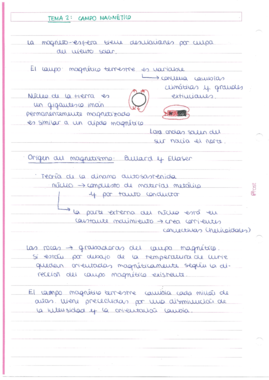 TEMA 2: CAMPO MAGNÉTICO
La magneto-esfera tiene desviaciones por culpa
del viento solar.
El campo magnético terrestre es variable
↳ conlleva cambios
climáticos y grandes
extinciones.
Núcleo de la tierra es
un gigantesco imán
permanentemente magnetizado
es similar a un dipolo magnético
Las líneas salen del
sur hacia el norte.
Origen del magnetismo: Bullard y Elsasser
Teoría de la dinamo autosostenida
núcleo → compuesto de material metálico
y por tanto conductor
↳ La parte externa del núcleo está en
constante movimiento → crea corrientes
convectivas (helicoidales)
Las rocas → grabadoras del campo magnético.
Si están por debajo de la temperatura de curie
quedan orientadas magnéticamente según la di-
rección del campo magnético existente.
El campo magnético terrestre cambia cada millón de
años, viene precedidas por una disminución de
la intensidad y la orientación cambia.